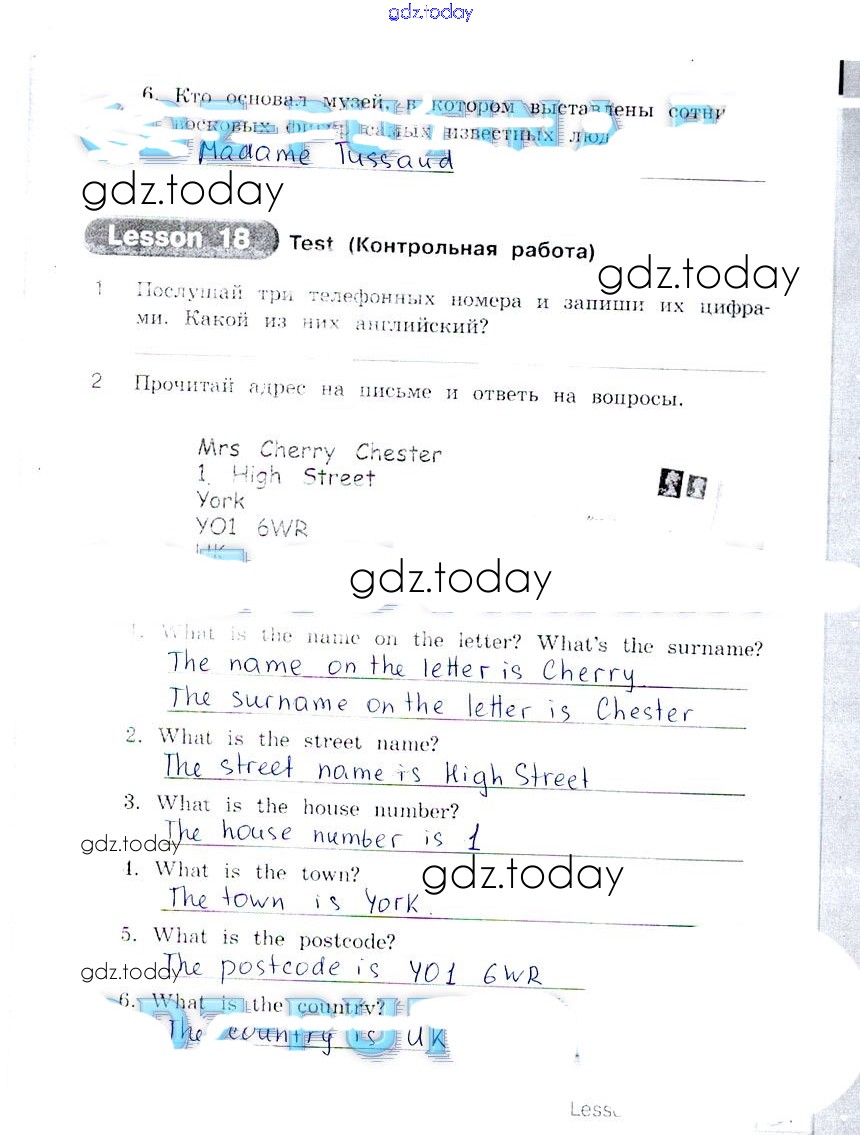 gdz.today
6. Кто основал музей, в котором выставлены сотни
восковых фигур самых известных люд
Madame Tussaud
gdz.today
Lesson 18 Test (Контрольная работа)
gdz.today
1 Послушай три телефонных номера и запиши их цифра-
ми. Какой из них английский?
2 Прочитай адрес на письме и ответь на вопросы.
Mrs Cherry Chester
1 High Street
York
YO1 6WR
UK
gdz.today
1. What is the name on the letter? What's the surname?
The name on the letter is Cherry
The surname on the letter is Chester
2. What is the street name?
The street name is High Street
3. What is the house number?
The house number is 1
gdz.today
4. What is the town?
gdz.today
The town is York.
5. What is the postcode?
gdz.today
The postcode is YO1 6WR
6. What is the country?
The country is UK
Lesso